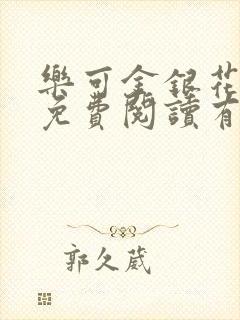 樂可金銀花
免費閱讀有
郭久葳